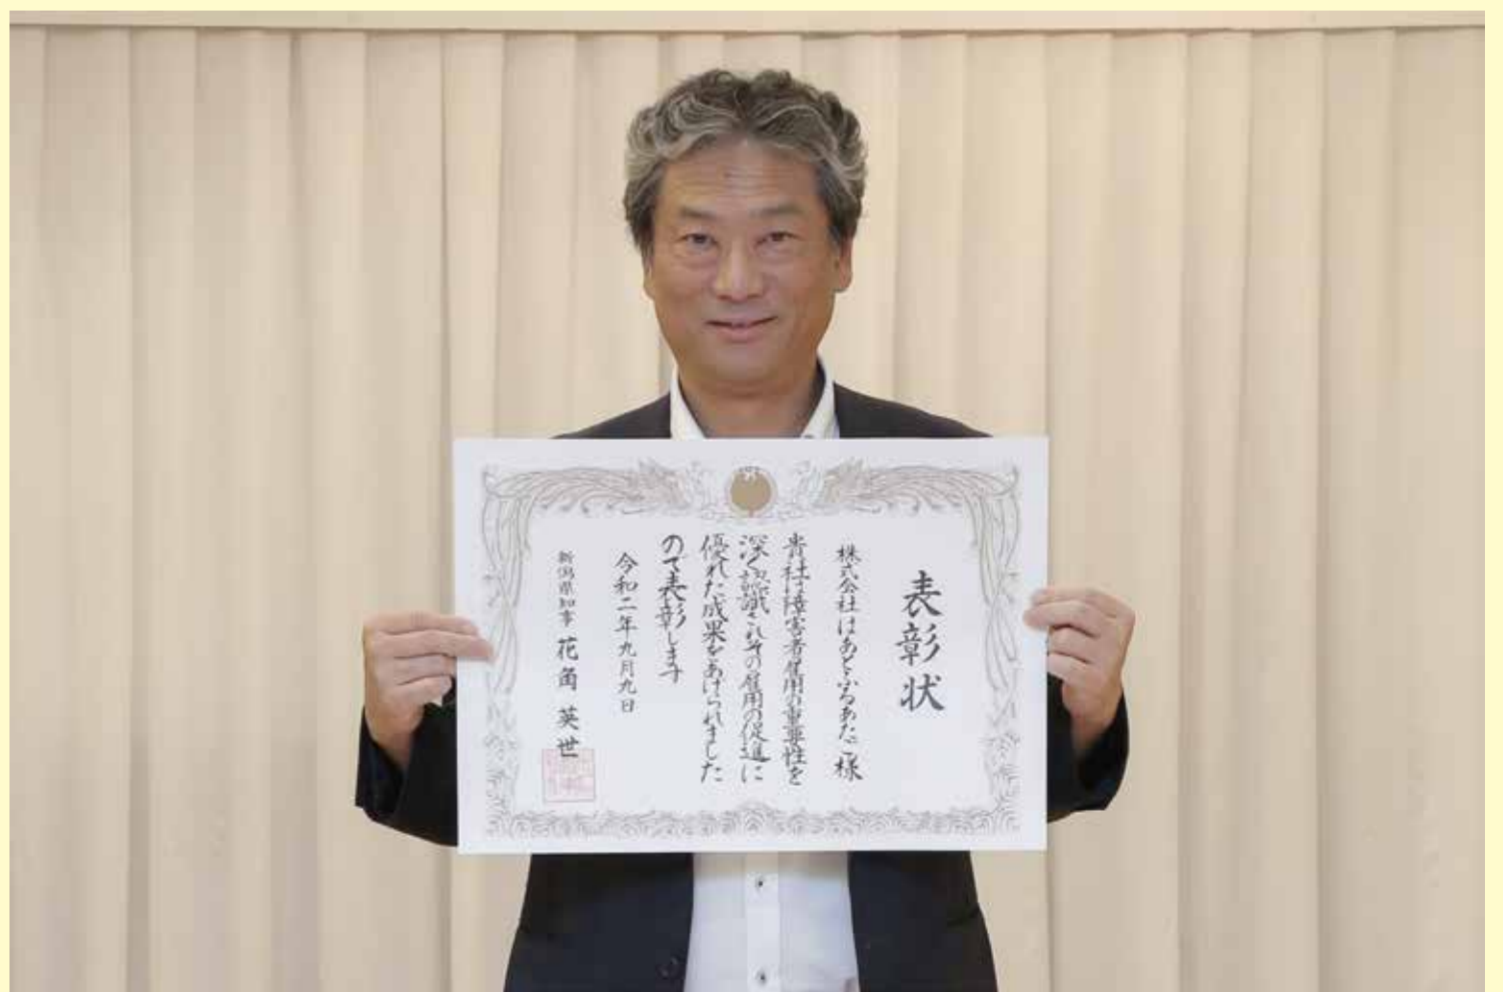 表彰状
株式会社はあとふるあたご様
貴社は障害者雇用の重要性を
深く認識されその雇用の促進に
優れた成果をあげられました
ので表彰します
令和二年九月九日
新潟県知事 花角英世